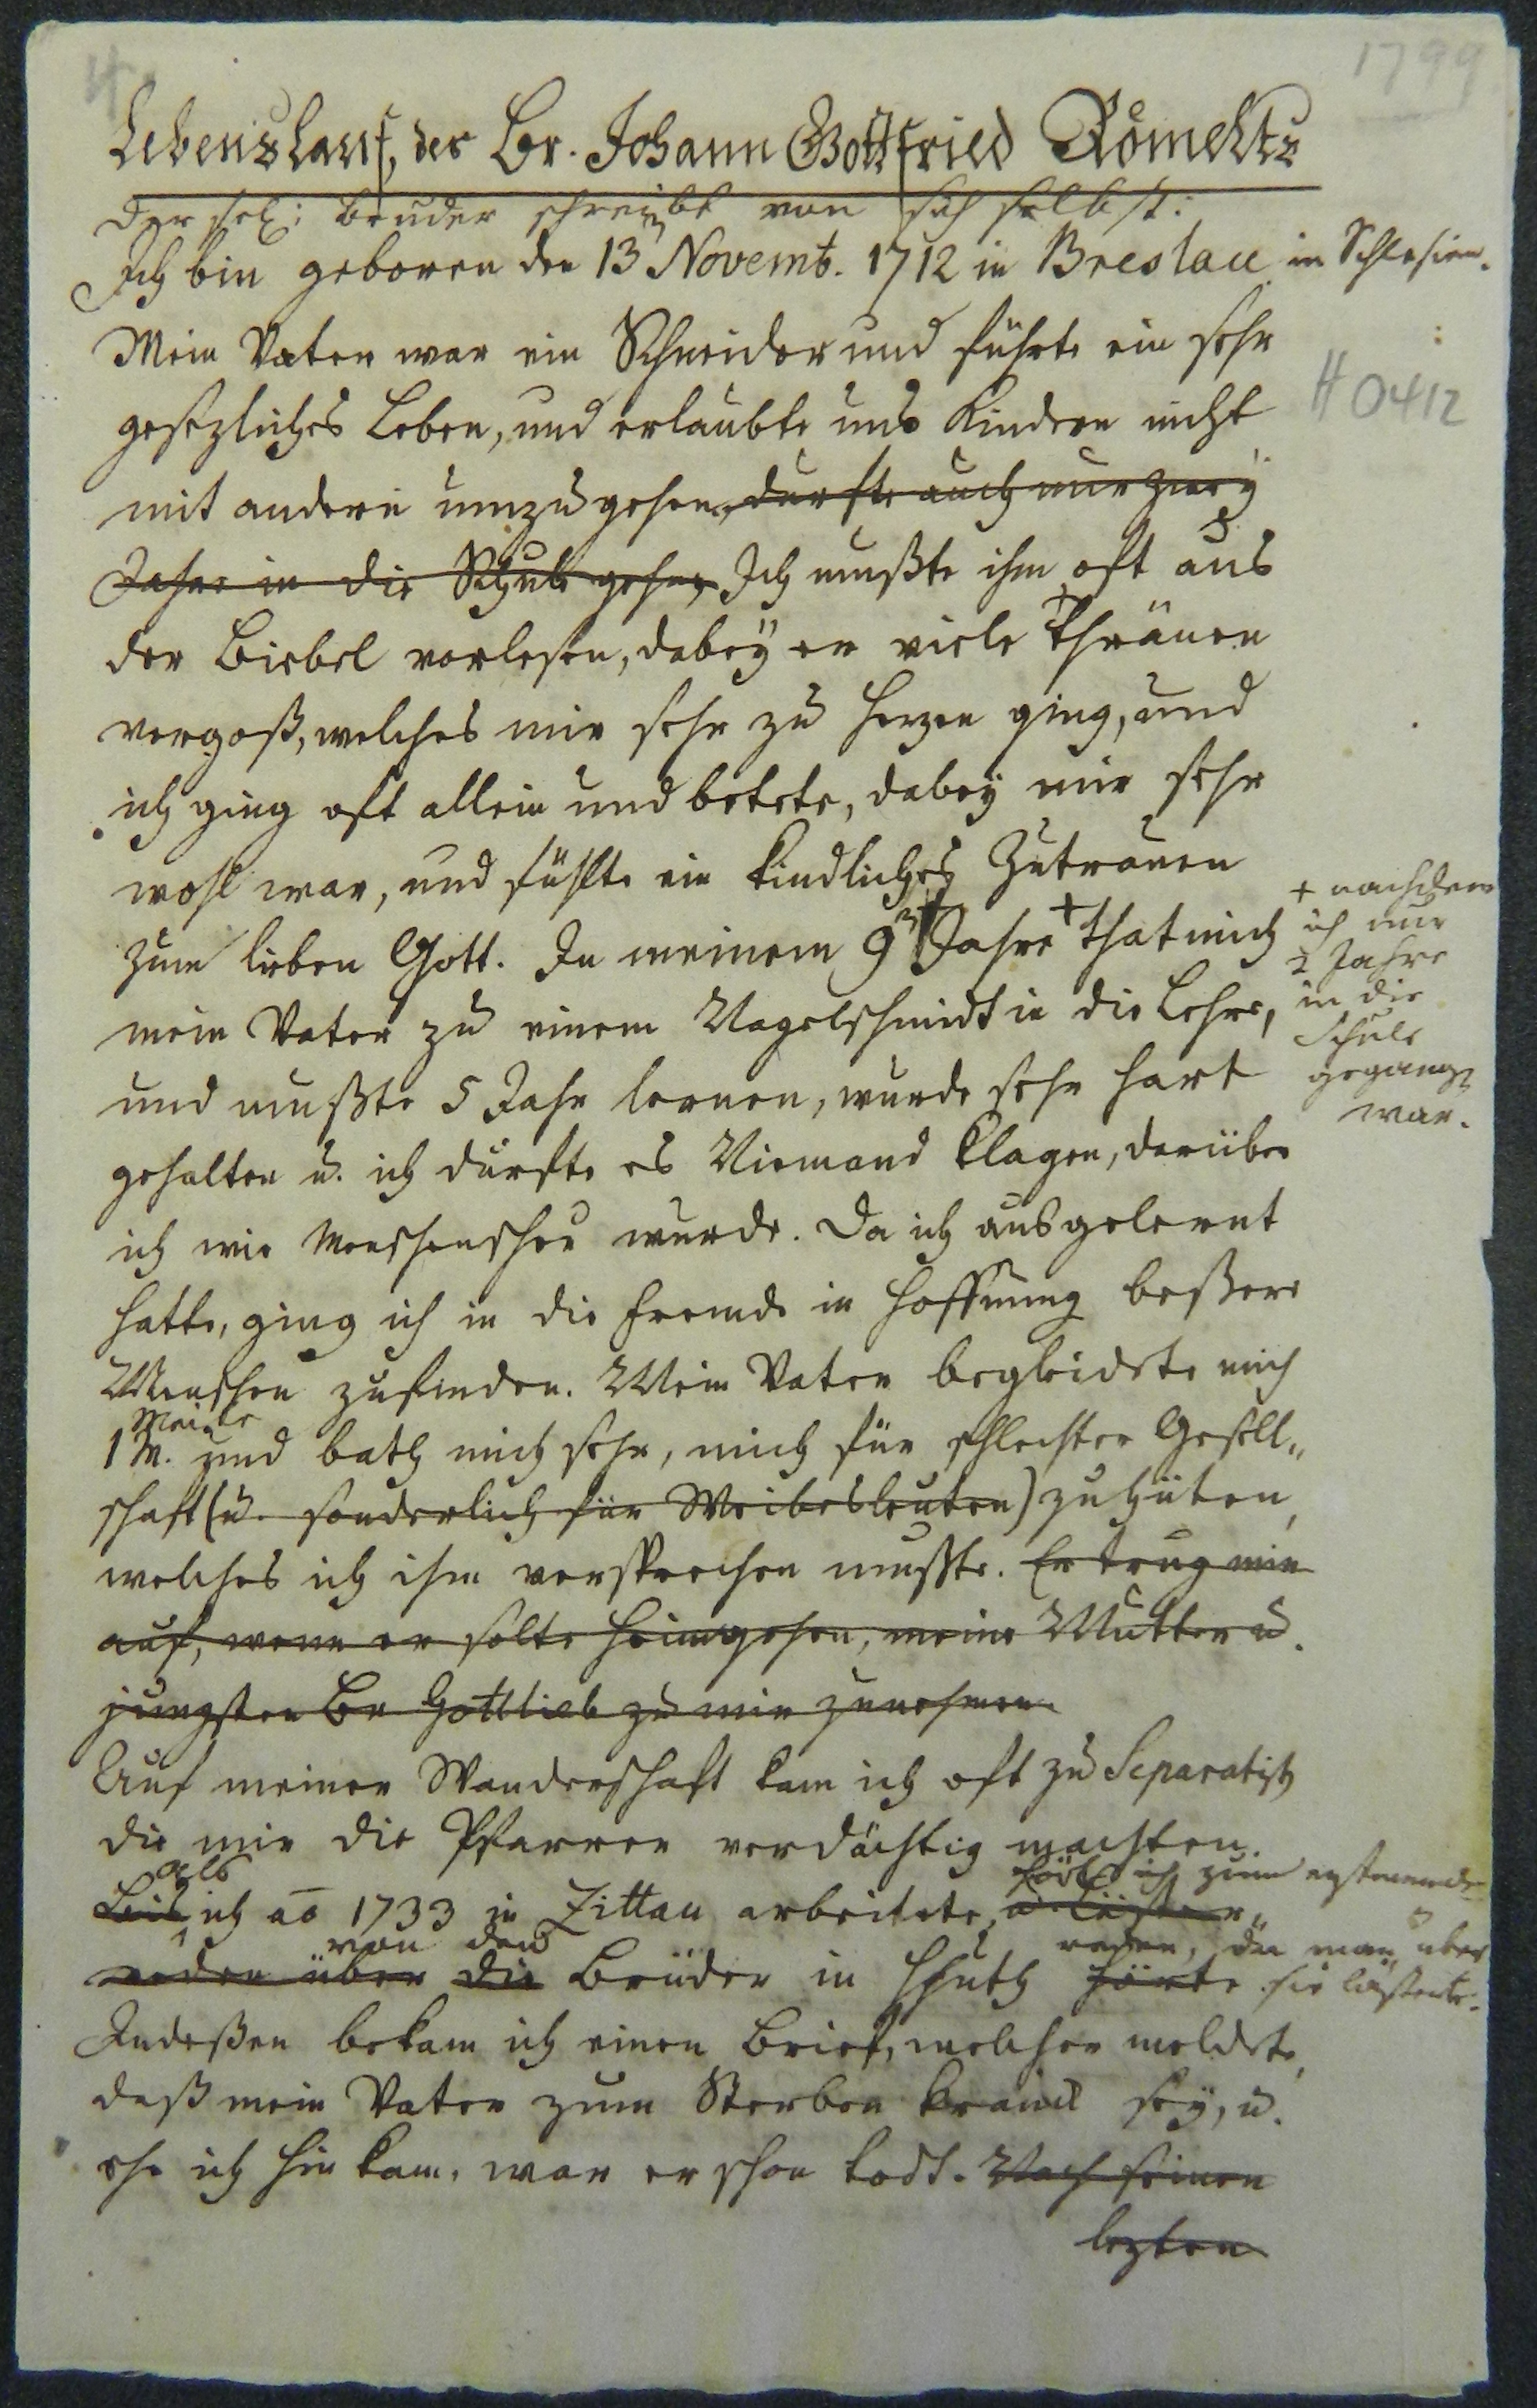 1799
Lebenslauf, des Br. Johann Gottfried Römelts
der sel: Bruder schreibt von sich selbst:
Ich bin geboren den 13n Novemb. 1712 in Breslau in Schlesien.
Mein Vater war ein Schneider und führte ein sehr
gesezliches Leben, und erlaubte uns Kindern nicht
H 0412
mit andern umzugehen, durfte auch nur zweÿ
Jahre in die Schule gehen, Ich mußte ihm oft aus
der Biebel vorlesen, dabeÿ er viele Thränen
vergoß, welches mir sehr zu Herzen ging, und
ich ging oft allein und betete, dabeÿ mir sehr
wohl war, und fühlte ein kindliches Zutrauen
zum lieben Gott. In meinem 9n Jahre + that mich
+ nachdem
ich nur
2 Jahre
in die
Schule
gegangen
war.
mein Vater zu einem Nagelschmidt in die Lehre,
und mußte 5 Jahr lernen, wurde sehr hart
gehalten u. ich durfte es Niemand klagen, darüber
ich wie Menschenscheu wurde. Da ich ausgelernt
hatte, ging ich in die Fremde in Hoffnung beßere
Menschen zufinden. Mein Vater begleidete mich
Meile
1 M. und bath mich sehr, mich für schlechter Gesell„
schaft (u. sonderlich für Weibesleuten) zu hüten,
welches ich ihm versprechen mußte. Er trug mir
auf, wenn er solte heimgehen, meine Mutter u.
jüngsten Br Gottlieb zu mir zunehmen.
Auf meiner Wanderschaft kam ich oft zu Separatisten
die mir die Pfarrer verdächtig machten.
als hört ich zum erstenmale
Bis ich ao 1733 in Zittau arbeitete, u Läster„
von den reden, da man über
reden über die Brüder in Hhuth hörte sie lästerte.
Indeßen bekam ich einen Brief, welcher meldete,
daß mein Vater zum Sterben kranck seÿ, u.
ehe ich hin kam, war er schon todt. Nach seinen
lezten